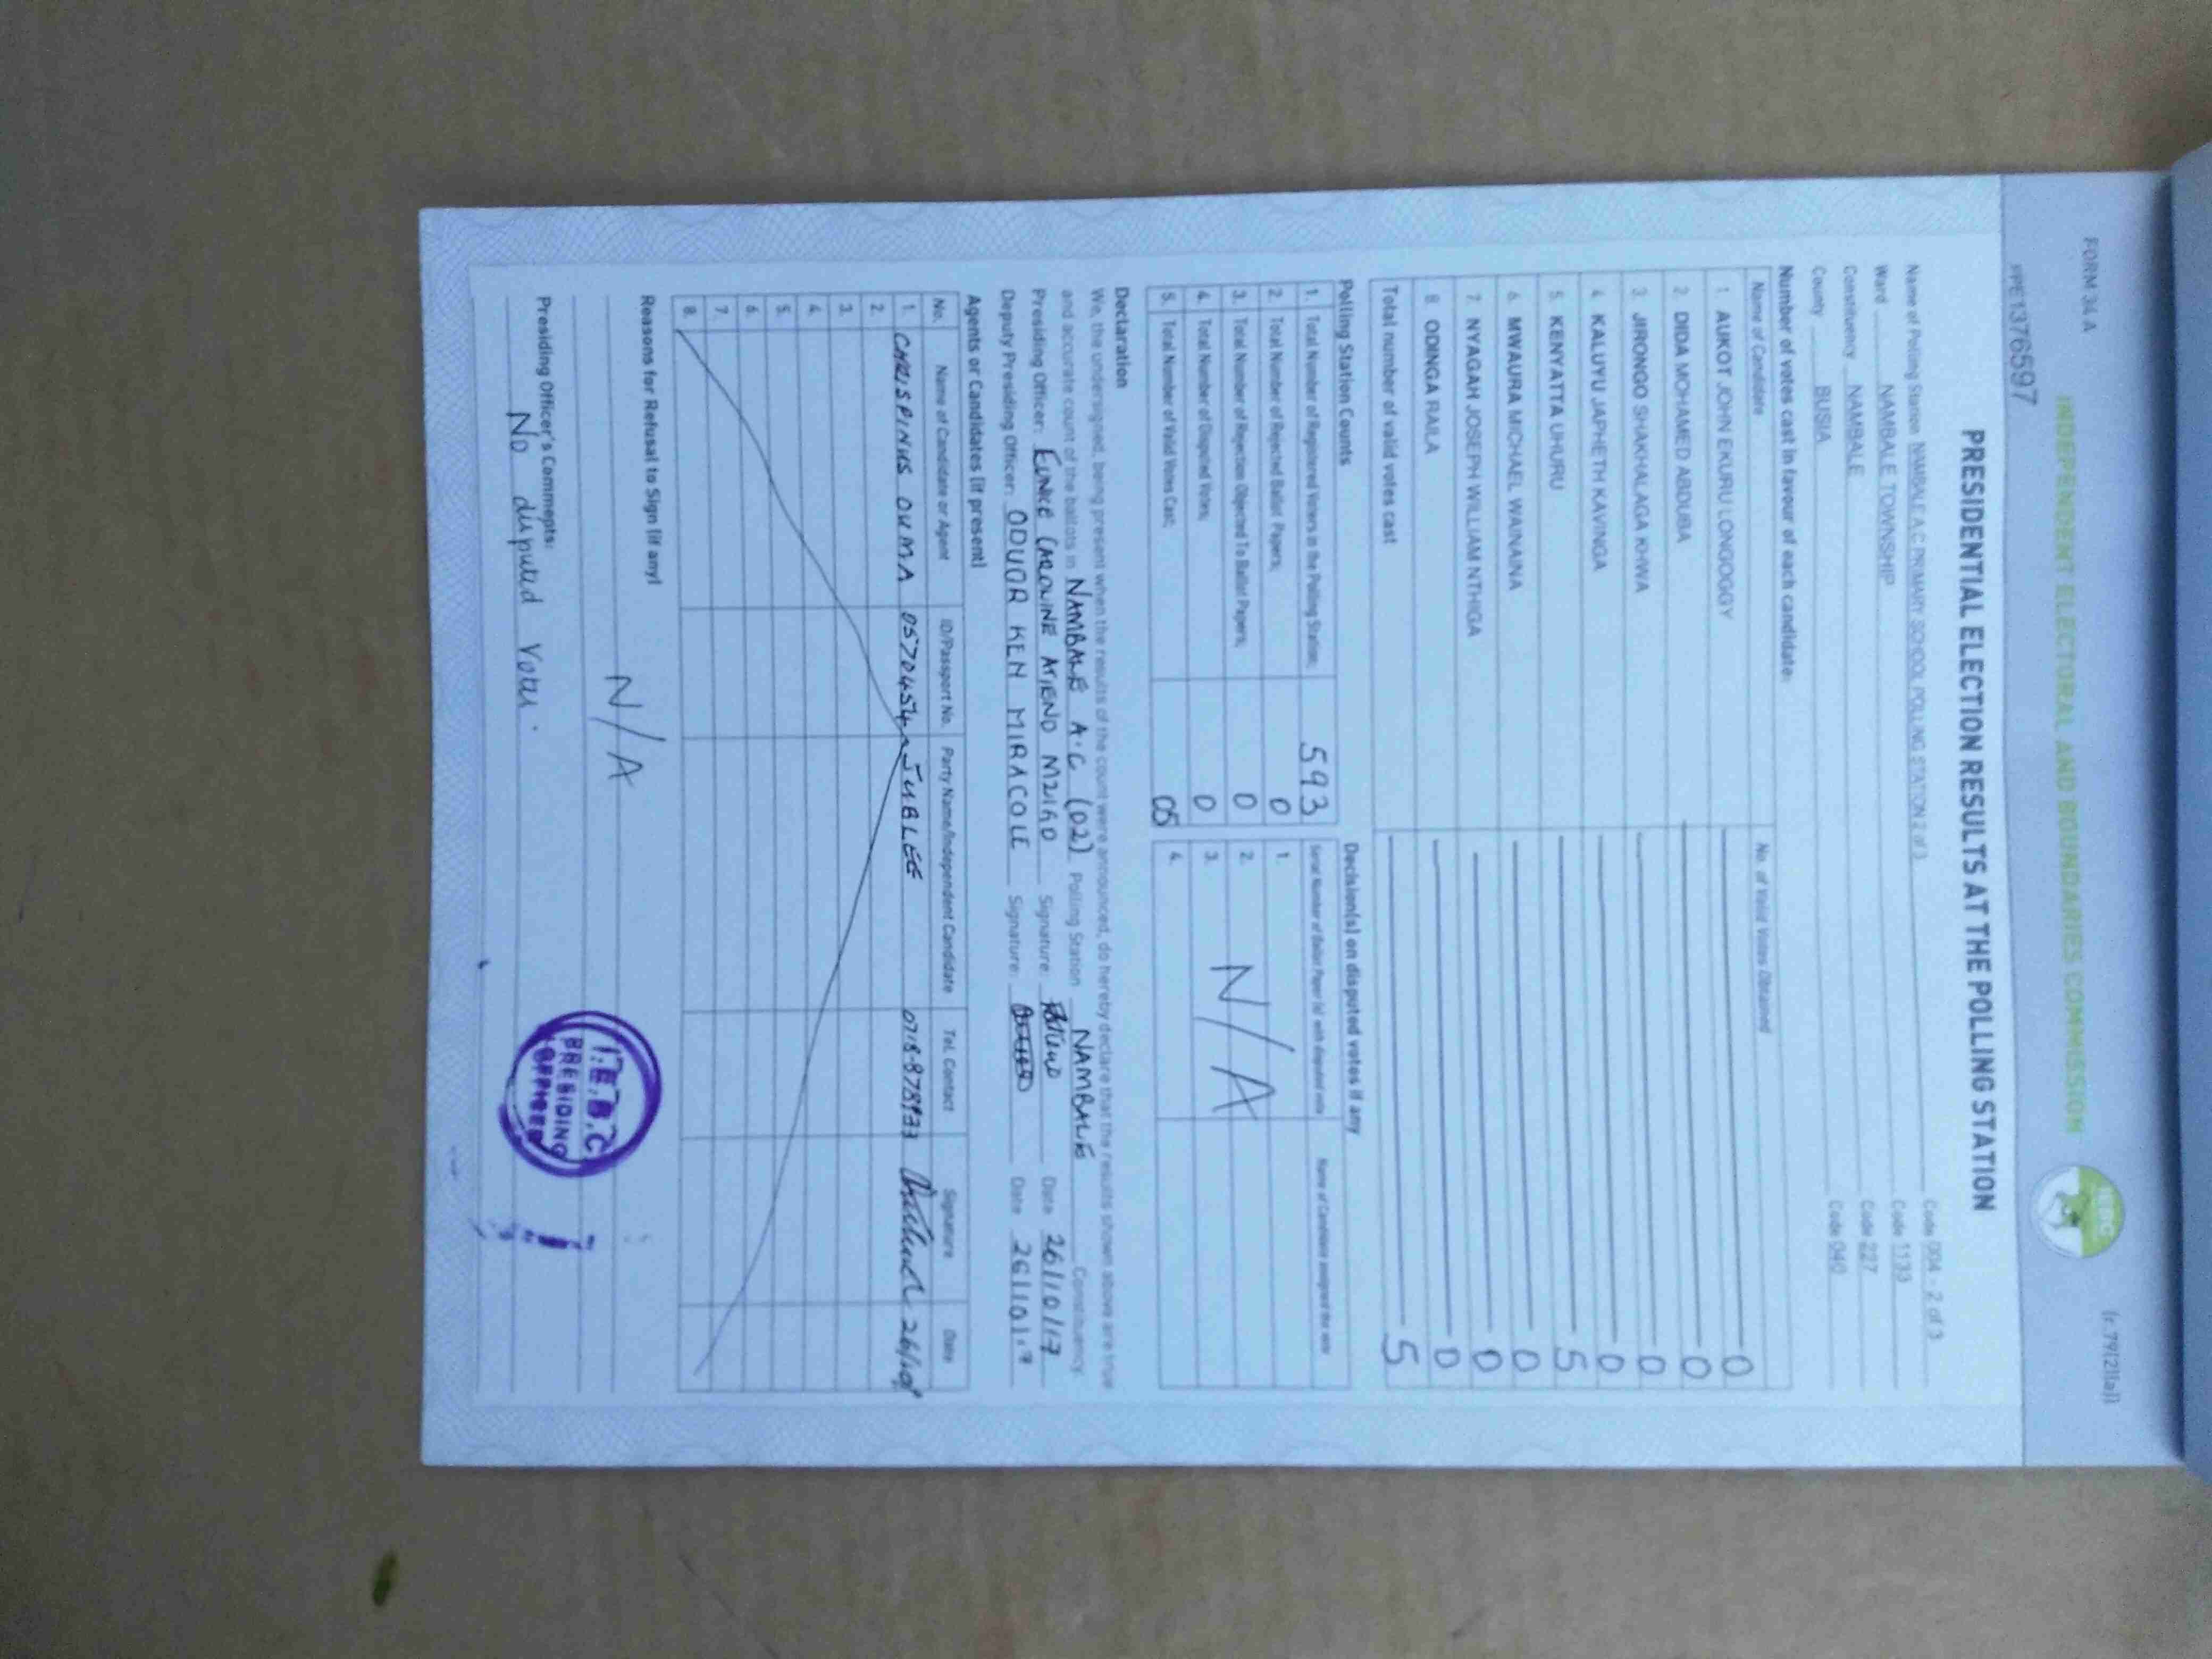 FORM 34 A
(r.79(2)(a))
INDEPENDENT ELECTORAL AND BOUNDARIES COMMISSION
IEBC
PPE1376597
PRESIDENTIAL ELECTION RESULTS AT THE POLLING STATION
Name of Polling Station NAMBALE A.C PRIMARY SCHOOL POLLING STATION 2 of 3 Code 004 - 2 of 3
Ward NAMBALE TOWNSHIP Code 1133
Constituency NAMBALE Code 227
County BUSIA Code 040
Number of votes cast in favour of each candidate:
Name of Candidate No. of Valid Votes Obtained
1. AUKOT JOHN EKURU LONGOGGY 0
2. DIDA MOHAMED ABDUBA 0
3. JIRONGO SHAKHALAGA KHWA 0
4. KALUYU JAPHETH KAVINGA 0
5. KENYATTA UHURU 5
6. MWAURA MICHAEL WAINAINA 0
7. NYAGAH JOSEPH WILLIAM NTHIGA 0
8. ODINGA RAILA 0
Total number of valid votes cast 5
Polling Station Counts Decision(s) on disputed votes if any
1. Total Number of Registered Voters in the Polling Station; 593 Serial Number of Ballot Paper (s) with disputed vote Name of Candidate assigned the vote
2. Total Number of Rejected Ballot Papers; 0 1.
3. Total Number of Rejection Objected To Ballot Papers; 0 2. N/A
4. Total Number of Disputed Votes; 0 3.
5. Total Number of Valid Votes Cast; 05 4.
Declaration
We, the undersigned, being present when the results of the count were announced, do hereby declare that the results shown above are true
and accurate count of the ballots in NAMBALE A.C (02) Polling Station NAMBALE Constituency
Presiding Officer: EUNICE CAROLINE ATIENO Signature: Date 26/10/17
Deputy Presiding Officer: ODUOR KEN MIRACOLE Signature: Date 26/10/17
Agents or Candidates (if present)
No. Name of Candidate or Agent ID/Passport No. Party Name/Independent Candidate Tel. Contact Signature Date
1. CHRISPINUS OUMA 0570454 JUBLEE 26/10/
2.
3.
4.
5.
6.
7.
8.
Reasons for Refusal to Sign (if any)
N/A
Presiding Officer's Comments:
No disputed Votes.
I.E.B.C
PRESIDING
OFFICER